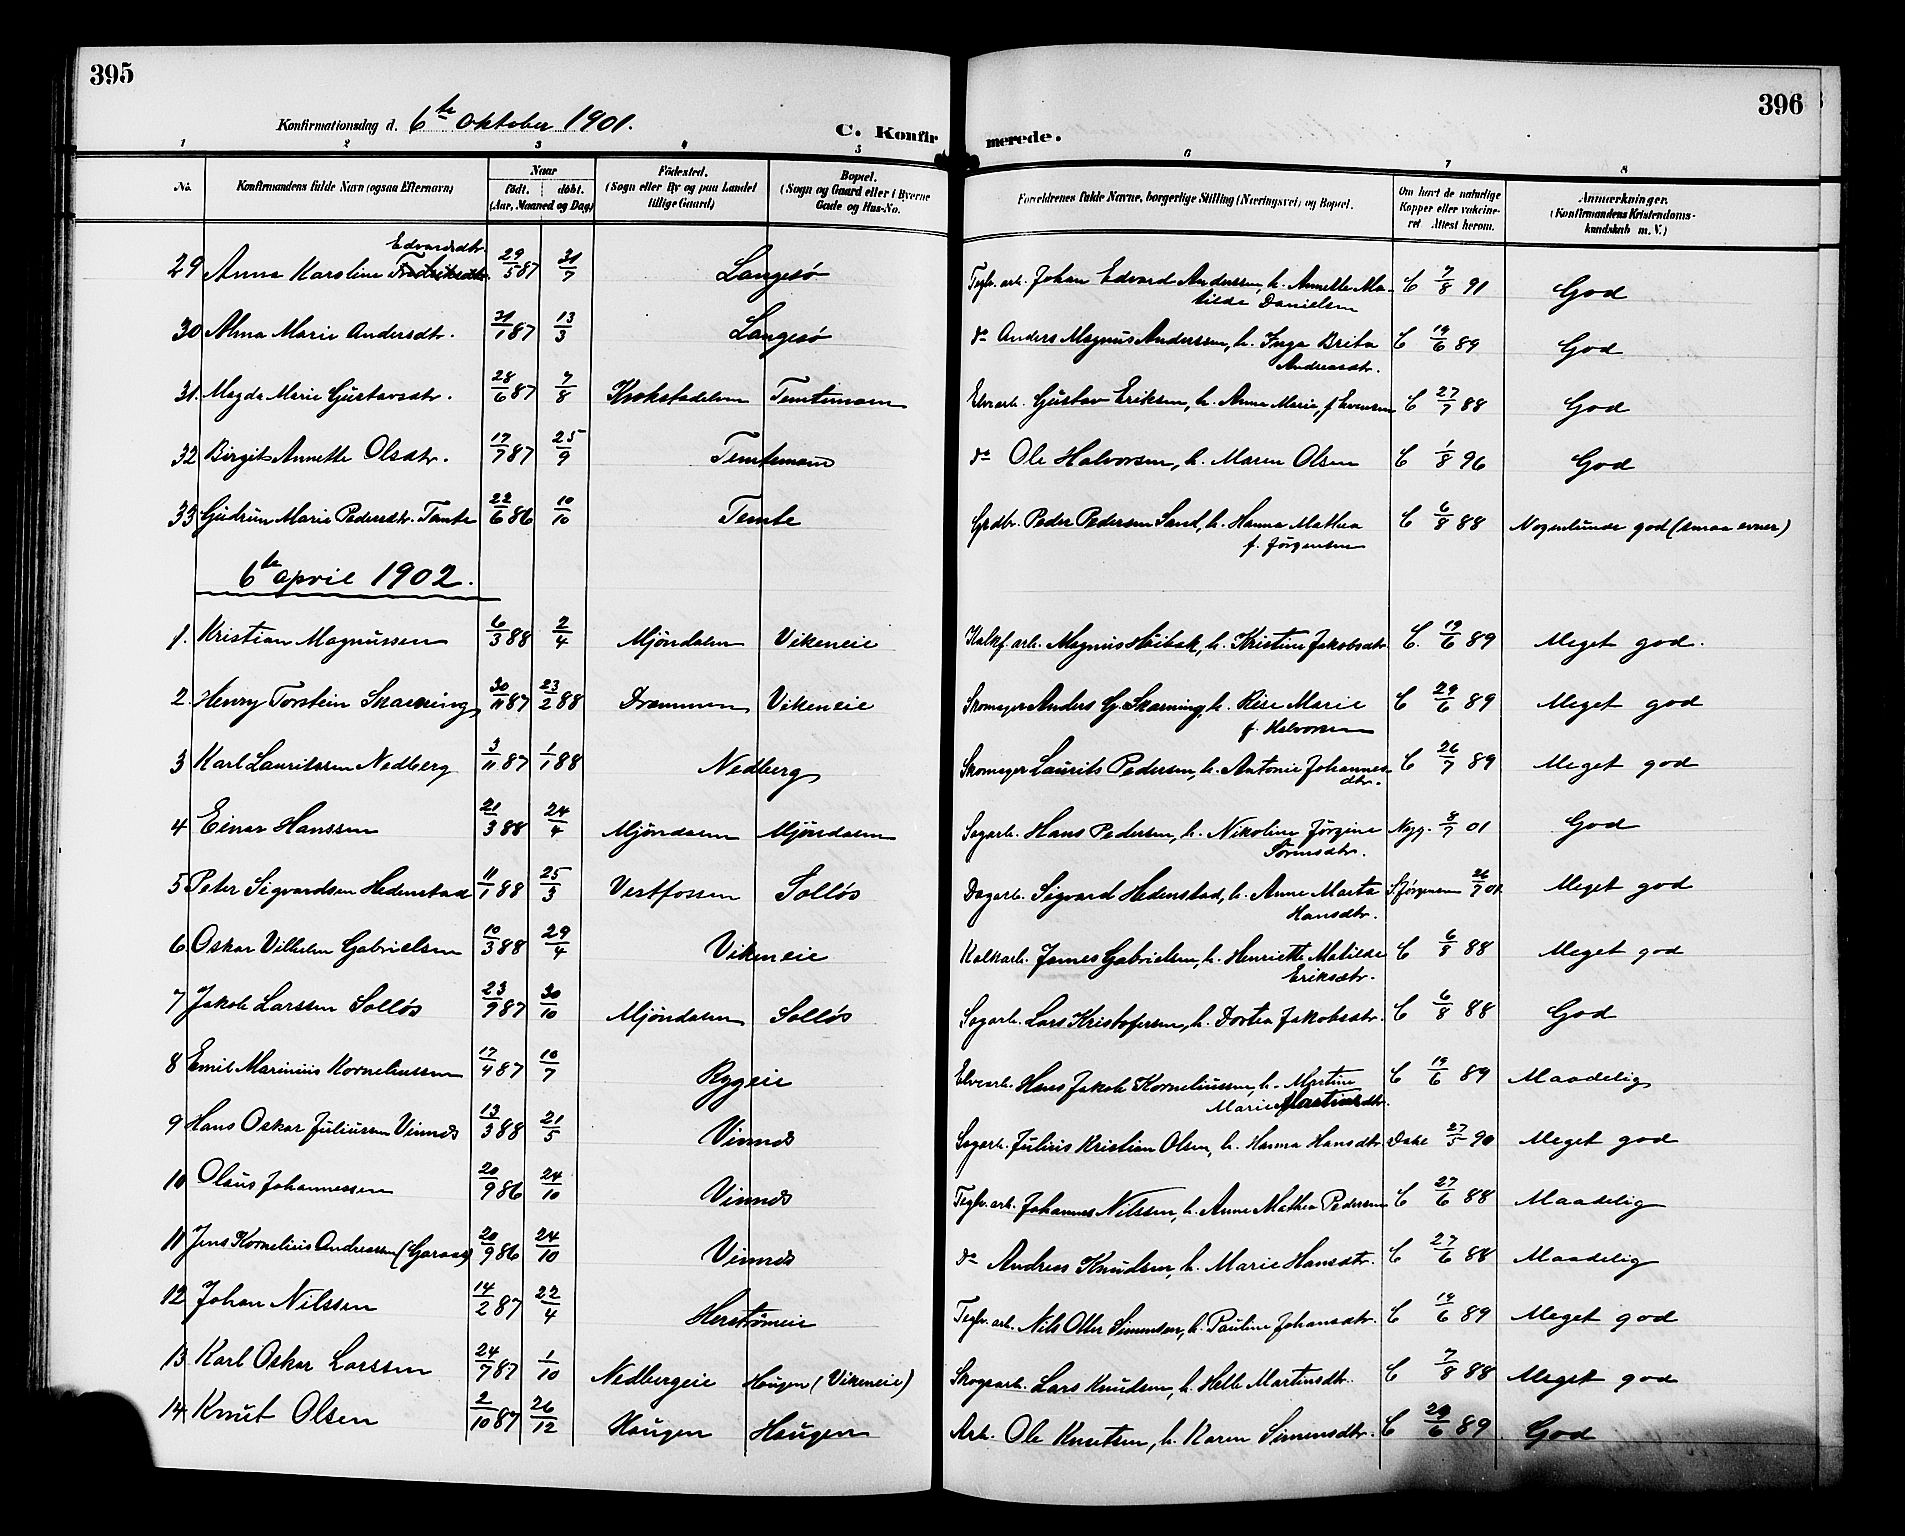 395
396
Konfirmationsdag d. 6te oktober 1901.
C. Konfirmerede.
1 2 3 4 5 6 7 8
No. Konfirmandens fulde Navn (ogsaa Efternavn) Naar født. døbt. (Aar, Maaned og Dag) Fødested. (Sogn eller By og paa Landet tillige Gaard) Bopæl. (Sogn og Gaard eller i Byerne Gade og Hus-No. Forældrenes fulde Navne, borgerlige Stilling (Næringsvei) og Bopæl. Om havt de naturlige Kopper eller vakcineret Attest herom. Anmærkninger. (Konfirmandens Kristendomskundskab m. V.)
29 Anna Karoline Edvardsdtr. 29/5 87 31/7 Langesø Teglv. arb. Johan Edvard Anderssen, h. Annette Matilde Danielsen C 7/8 91 God
30 Alma Marie Andersdtr. 31/1 87 13/3 Langesø do Anders Magnus Anderssen, h. Inga Brita Andreasdtr. C 19/6 89 God
31. Magda Marie Gustavsdtr. 28/6 87 7/8 Krokstadelven Temtemoen Elvearb. Gustav Eriksen, h. Anna Marie, f. Evensen C 27/7 88 God
32 Birgit Annette Olsdtr. 17/7 87 25/9 Temtemoen do Ole Halvorsen, h. Maren Olsen C 1/8 96 God
33 Gudrun Marie Pedersdtr. Temte 22/6 86 10/10 Temte Grdbr. Peder Pedersen Sand, h. Hanna Mathea f. Jørgensen C 6/8 88 Nogenlunde god (smaa evner)
6te april 1902.
1. Kristian Magnussen 6/3 88 2/4 Mjøndalen Vikeneie Kalkf. arb. Magnus Høibak, h. Kristine Jakobsdtr. C. 19/6 89 Meget god.
2. Henry Torstein Skarning 30/11 87 23/2 88 Drammen Vikeneie Skomager Anders G. Skarning, h. Rise Marie f. Halvorsen C 29/6 89 Meget god
3 Karl Lauritssen Nedberg 3/11 87 1/1 88 Nedberg Skomager Laurits Pedersen, h. Antonie Johannesdtr. C 26/7 89 Meget god
4 Einar Hanssen 21/3 88 24/4 Mjøndalen Mjøndalen Sagarb. Hans Pedersen, h. Nikoline Jørgine Sørensdtr. Nyg. 8/7 01 God
5 Peter Sigvardsen Hedenstad 11/1 88 25/3 Vestfossen Solløs Dagarb. Sigvard Hedenstad, h. Anne Marta Hansdtr. S. Jørgensen 26/7 01. Meget god
6 Oskar Vilhelm Gabrielsen 10/3 88 29/4 Vikeneie Kalkarb. James Gabrielsen, h. Henriette Matilde Eriksdtr. C 6/8 88 Meget god
7 Jakob Larssen Solløs 23/9 87 30/10 Mjøndalen Solløs Sagarb. Lars Kristofersen, h. Dortea Jakobsdtr. C 6/8 88 God
8 Emil Marinius Korneliussen 17/4 87 10/7 Rygeie Elvearb. Hans Jakob Korneliussen, h. Martine Marie Martinsdtr. C 19/6 89 Maadelig
9 Hans Oskar Juliussen Vinnes 13/3 88 21/5 Vinnes Sagarb. Julius Kristian Olsen, h. Hanna Hansdtr. Dahl 27/5 90 Meget god
10 Olaus Johannessen 20/9 86 24/10 Vinnes Teglv. arb. Johannes Nilssen, h. Anne Mathea Pedersen C 27/6 88 Maadelig
11 Jens Kornelius Andreassen (Garaas) 20/9 86 24/10 Vinnes do Andreas Knudsen, h. Marie Hansdtr. C 27/6 88 Maadelig
12 Johan Nilssen 14/2 87 22/4 Herstrømeie Teglv. arb. Nils Otter Simensen, h. Pauline Johansdtr. C 19/6 89 Meget god
13 Karl Oskar Larssen 24/7 87 1/10 Nedbergeie Haugen (Vikeneie) Skogsarb. Lars Knudsen, h. Helle Martinsdtr. C 7/8 88 Meget god
14 Knut Olsen 2/10 87 26/12 Haugen Haugen Arb. Ole Knutsen, h. Karen Simensdtr. C 29/6 89 God